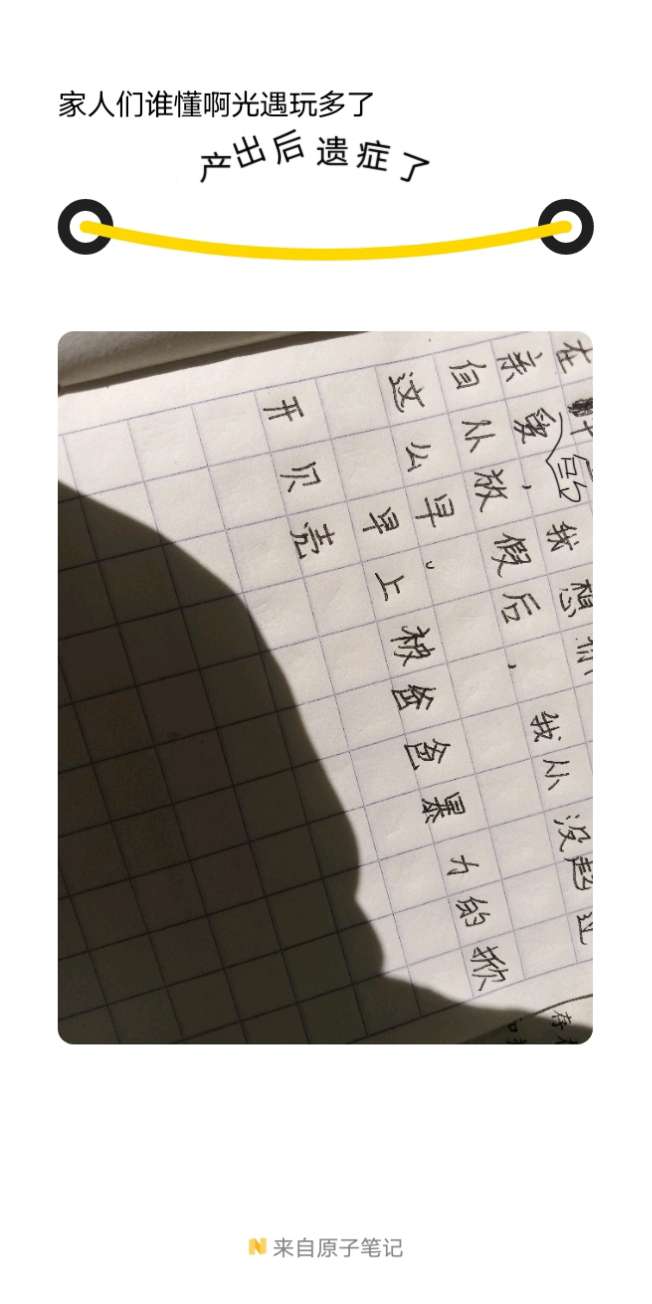 家人们谁懂啊光遇玩多了
产出后遗症了
在
亲爱，我想
自从放假后，我从没起过
这么早。
早上被爸爸暴力的掀
开贝壳
来自原子笔记